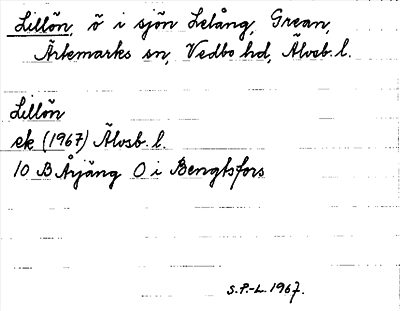 Lillön, ö i sjön Lelång, Grean,
Ärtemarks sn, Vedbo hd, Älvsb. l.
Lillön
ek (1967) Älvsb. l.
10 B Årjäng O i Bengtsfors
S.P.-L. 1967.